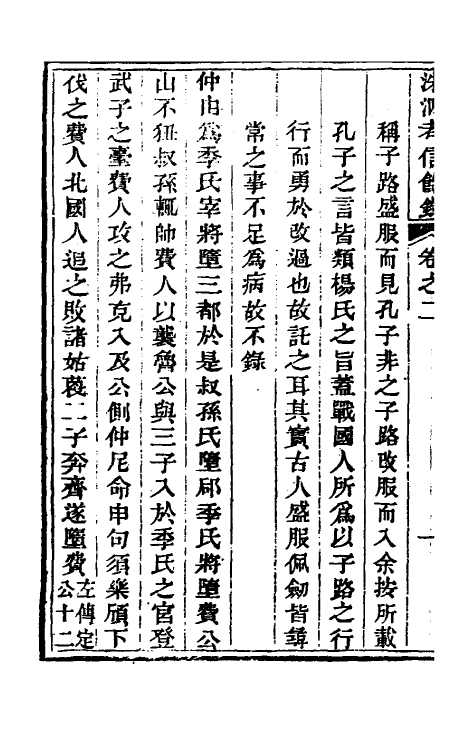 洙泗考信餘錄 卷之二 一
稱子路盛服而見孔子非之子路改服而入余按所載
孔子之言皆類楊氏之旨蓋戰國人所爲以子路之行
行而勇於改過也故託之耳其實古人盛服佩劒皆尋
常之事不足爲病故不錄
仲由爲季氏宰將墮三都於是叔孫氏墮郈季氏將墮費公
山不狃叔孫輒帥費人以襲魯公與三子入於季氏之宮登
武子之臺費人攻之弗克入及公側仲尼命申句須樂頎下
伐之費人北國人追之敗諸姑蔑二子奔齊遂墮費左傳定公十二